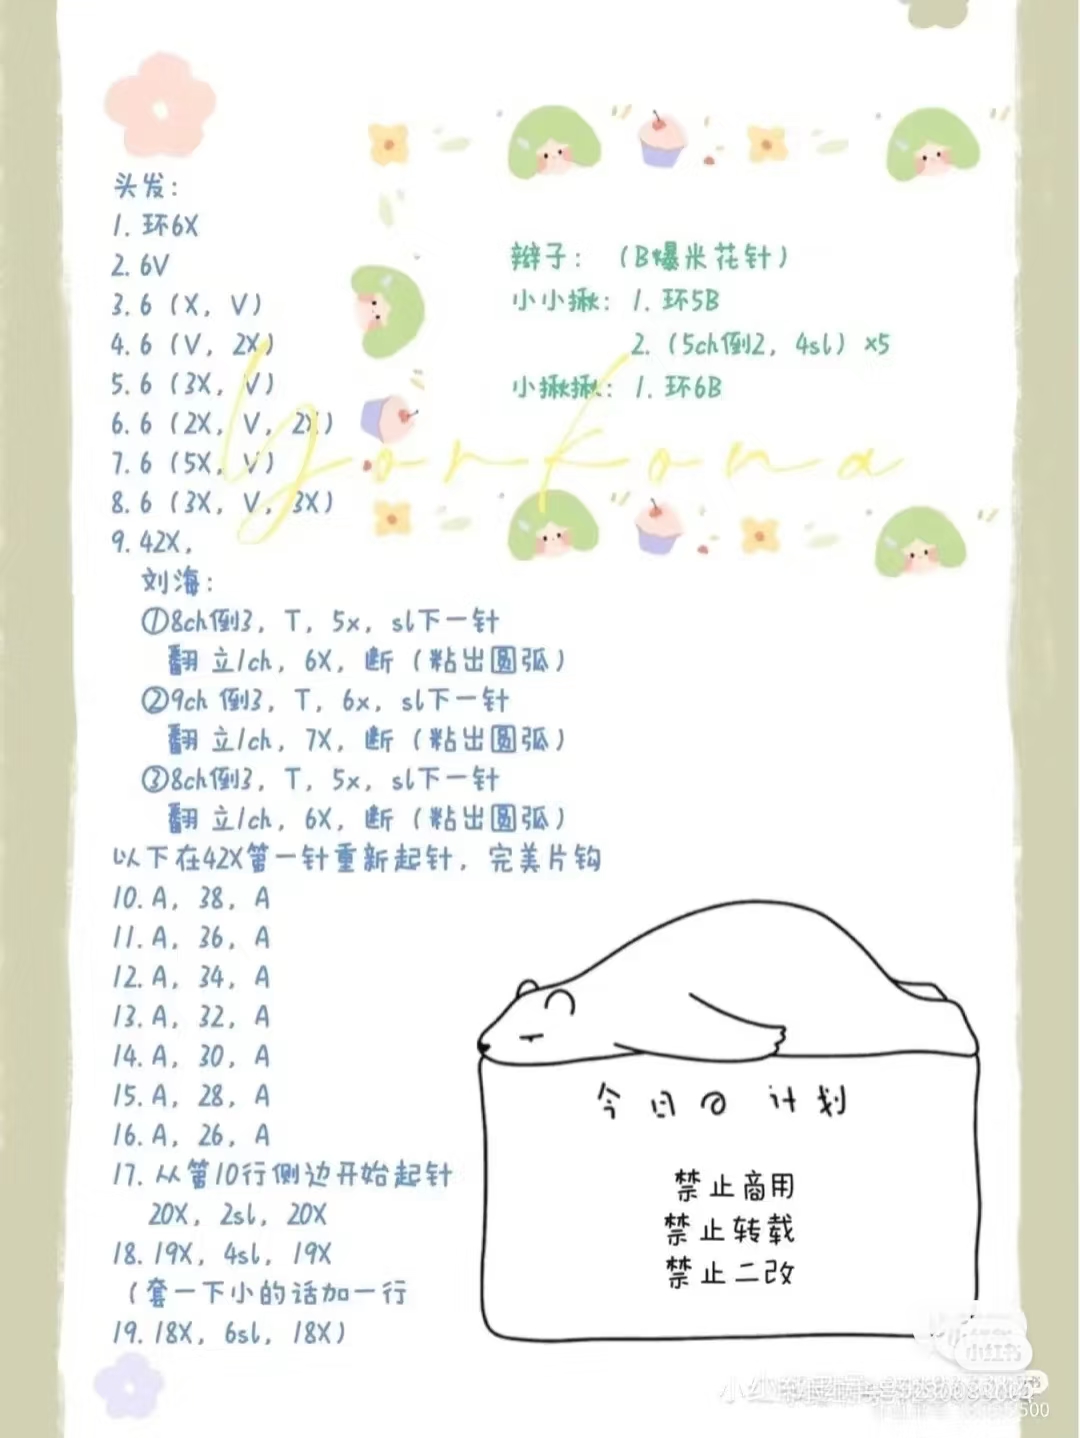 头发：
1. 环6X
2. 6V
3. 6（X，V）
4. 6（V，2X）
5. 6（3X，V）
6. 6（2X，V，2X）
7. 6（5X，V）
8. 6（3X，V，3X）
9. 42X，
刘海：
①8ch倒3，T，5x，sl下一针
翻 立1ch，6X，断（粘出圆弧）
②9ch 倒3，T，6x，sl下一针
翻 立1ch，7X，断（粘出圆弧）
③8ch倒3，T，5x，sl下一针
翻 立1ch，6X，断（粘出圆弧）
以下在42X第一针重新起针，完美片钩
10. A，38，A
11. A，36，A
12. A，34，A
13. A，32，A
14. A，30，A
15. A，28，A
16. A，26，A
17. 从第10行侧边开始起针
20X，2sl，20X
18. 19X，4sl，19X
（套一下小的话加一行
19. 18X，6sl，18X）
辫子：（B爆米花针）
小小揪：1. 环5B
2.（5ch倒2，4sl）×5
小揪揪：1. 环6B
今日の计划
禁止商用
禁止转载
禁止二改
小红书